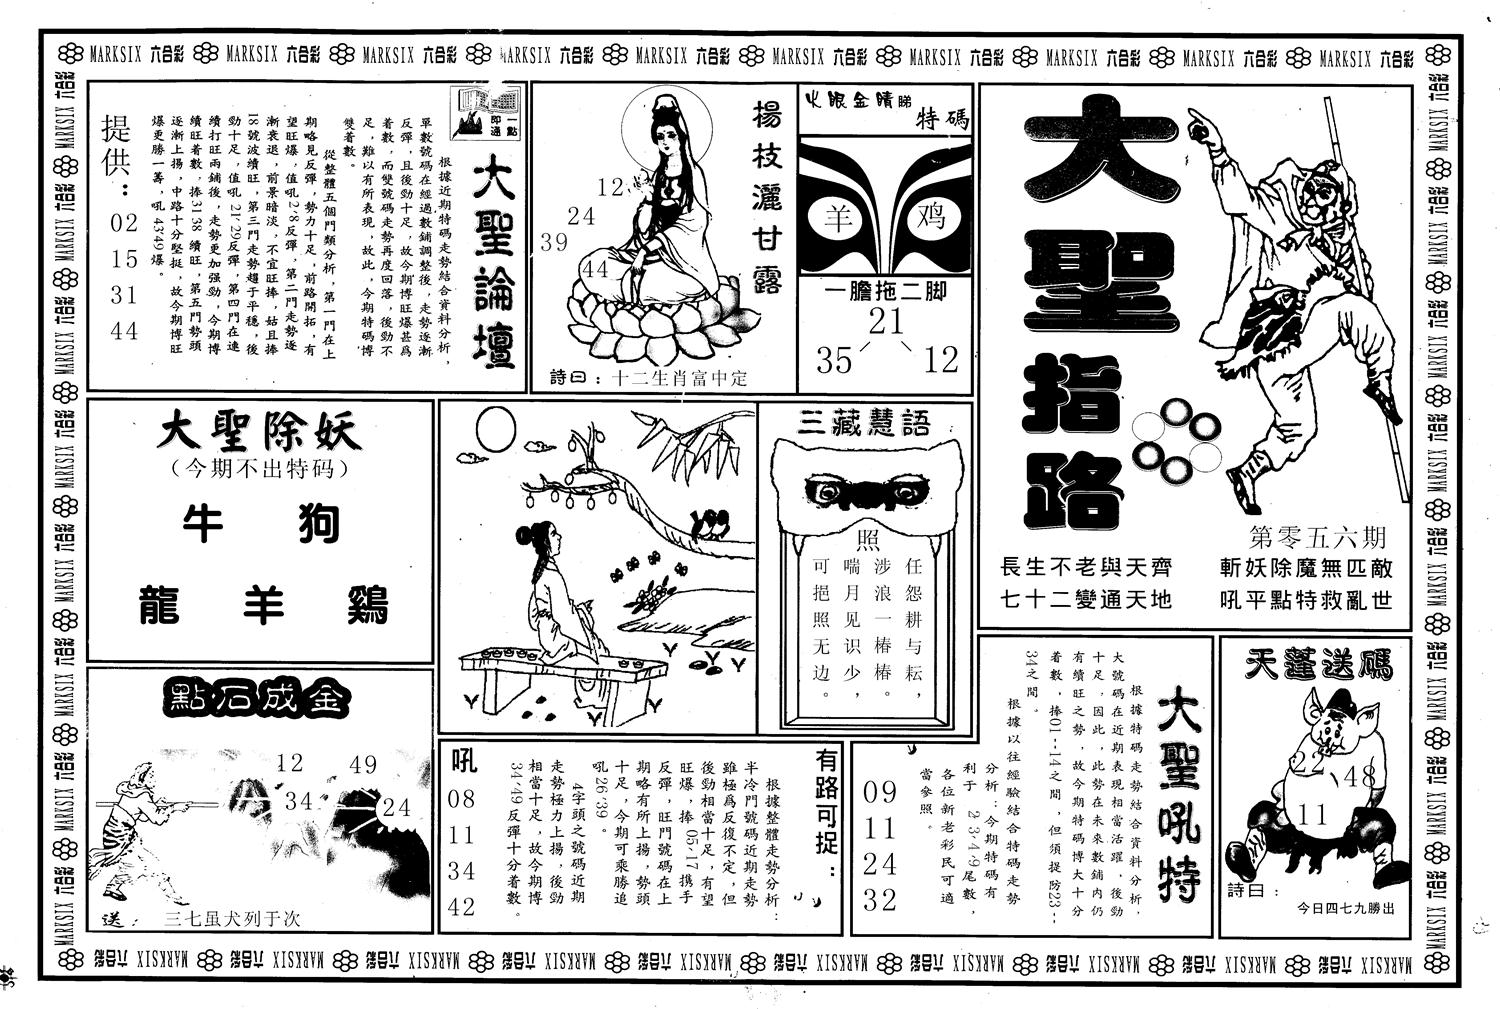 MARKSIX 六合彩 MARKSIX 六合彩 MARKSIX 六合彩 MARKSIX 六合彩 MARKSIX 六合彩 MARKSIX 六合彩 MARKSIX 六合彩 MARKSIX 六合彩 MARKSIX 六合彩 MARKSIX 六合彩
大聖指路
第零五六期
長生不老與天齊
七十二變通天地
斬妖除魔無匹敵
吼平點特救亂世
火眼金睛睇
特碼
羊
鸡
一膽拖二脚
21
35
12
楊枝灑甘露
12
24
39
44
詩曰：十二生肖富中定
一點即通
大聖論壇
根據近期特碼走勢結合資料分析，
單數號碼在經過數鋪調整後，走勢逐漸
反彈，且後勁十足，故今期博旺爆甚爲
着數，而雙號碼走勢再度回落，後勁不
足，難以有所表現，故此，今期特碼博
雙着數。
從整體五個門類分析，第一門在上
期略見反彈，勢力十足，前路開拓，有
望旺爆，值吼2·8反彈，第二門走勢逐
漸衰退，前景暗淡，不宜旺捧，姑且捧
18號波續旺，第三門走勢趨于平穩，後
勁十足，值吼21·29反彈，第四門在連
續打旺兩鋪後，走勢更加强勁，今期博
續旺着數，捧31·38續旺，第五門勢頭
逐漸上揚，中路十分堅挺，故今期博旺
爆更勝一籌，吼43·49爆。
提供：
02
15
31
44
大聖除妖
（今期不出特码）
牛 狗
龍 羊 鷄
三藏慧語
照
任怨耕与耘，
涉浪一椿椿。
喘月见识少，
可挹照无边。
點石成金
12
49
34
24
送：三七虽犬列于次
有路可捉：
根據整體走勢分析：
半冷門號碼近期走勢
雖極爲反復不定，但
後勁相當十足，有望
旺爆，捧05·17携手
反彈，旺門號碼在上
期略有所上揚，勢頭
十足，今期可乘勝追
吼26·39。
4字頭之號碼近期
走勢極力上揚，後勁
相當十足，故今期博
34·49反彈十分着數。
吼
08
11
34
42
大聖吼特
根據特碼走勢結合資料分析，
大號碼在近期表現相當活躍，後勁
十足，因此，此勢在未來數鋪内仍
有續旺之勢，故今期特碼博大十分
着數，捧01--14之間，但須提防23--
34之間。
根據以往經驗結合特碼走勢
分析：今期特碼有
利于 2·3·4·9尾數，
各位新老彩民可適
當參照。
09
11
24
32
天蓬送碼
22
48
11
詩曰：
今日四七九勝出